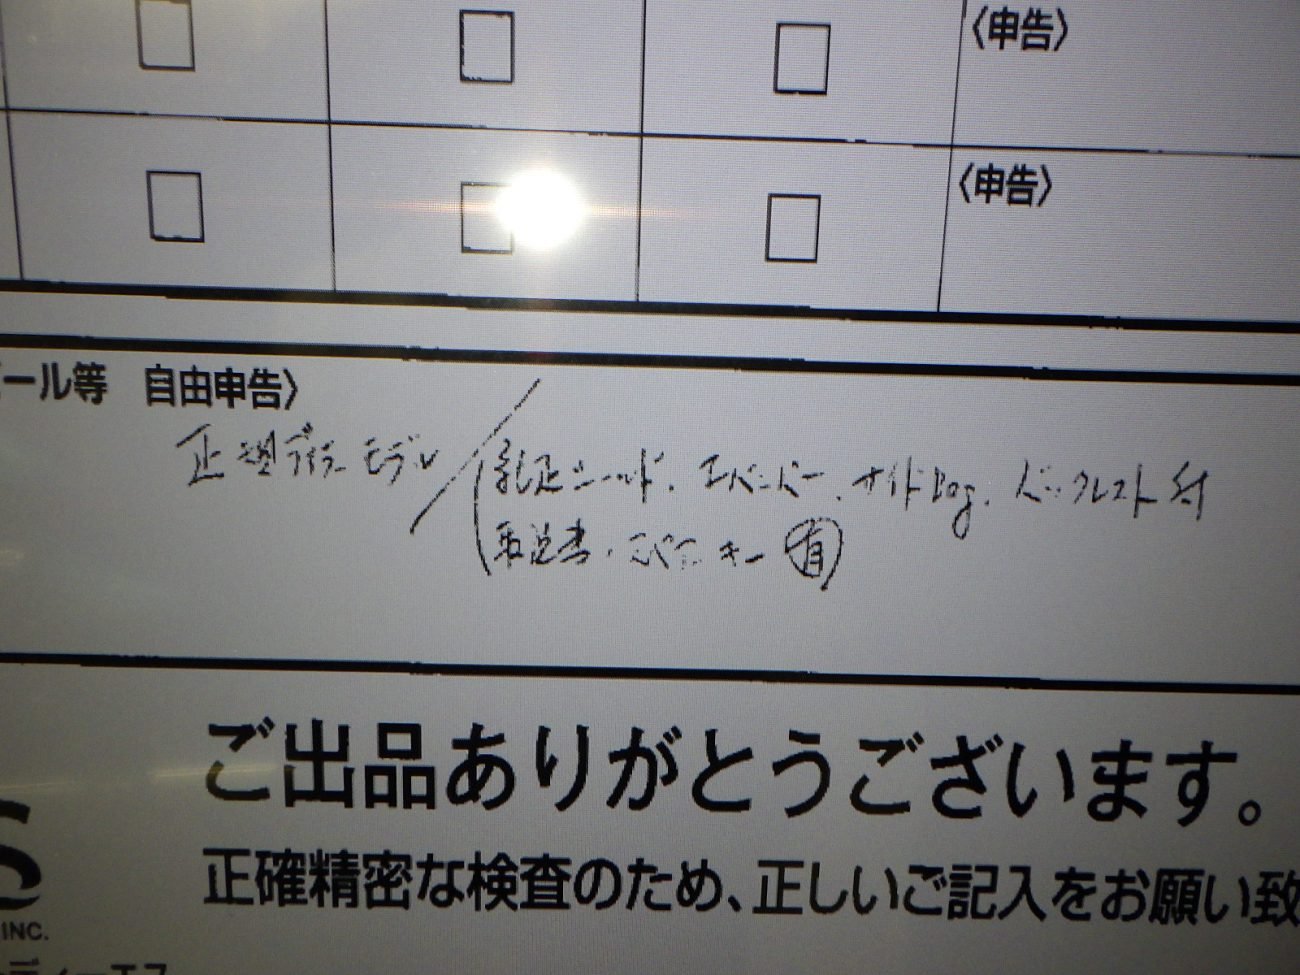 〈申告〉
〈申告〉
ール等 自由申告〉
正規ディーラーモデル
純正シールド、エンジンバンパー、サイドBag、バックレスト付
取説書・スペアキー 有
ご出品ありがとうございます。
正確精密な検査のため、正しいご記入をお願い致
INC.
ディーエス